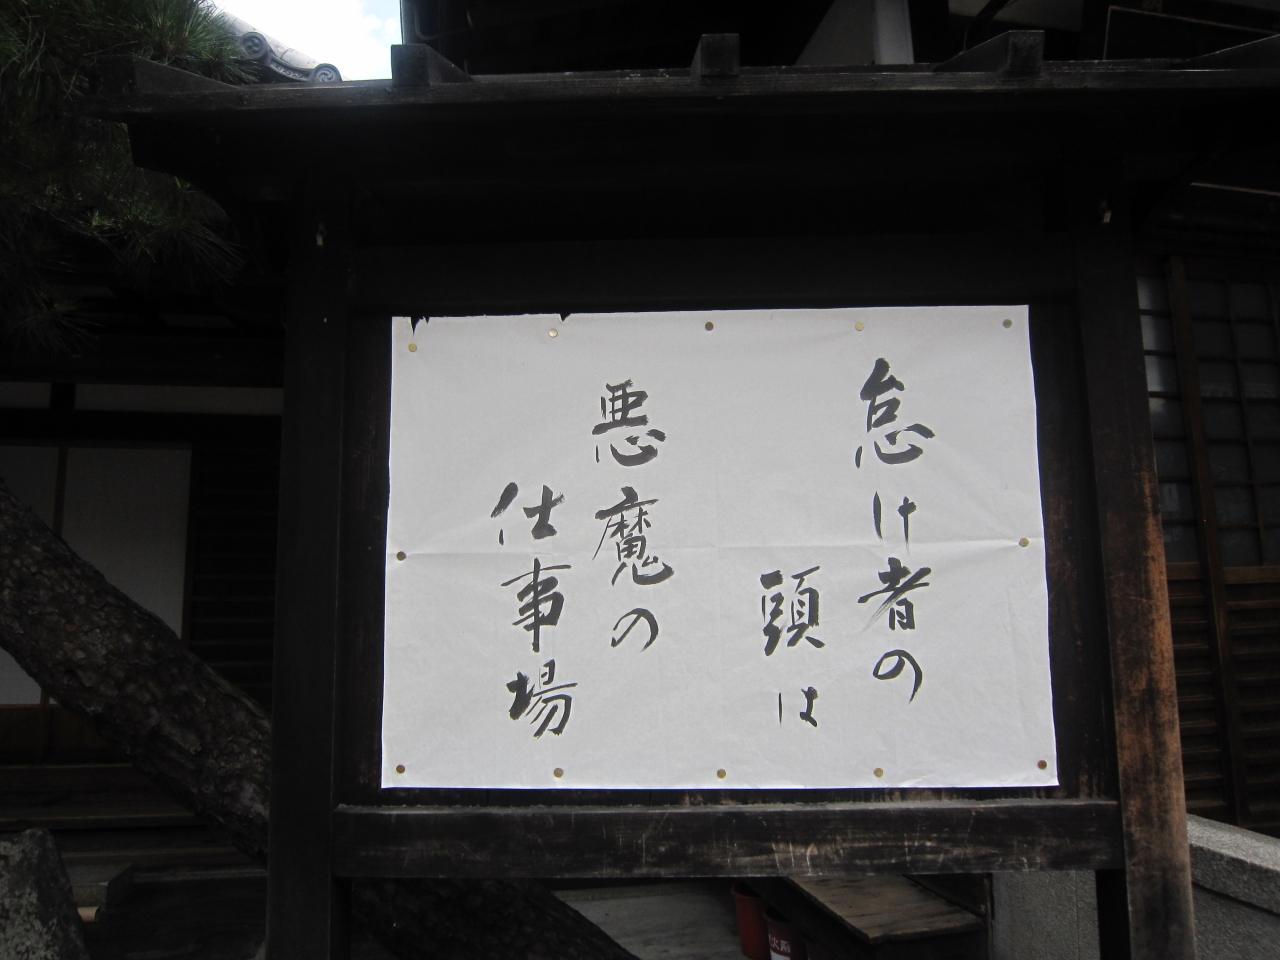 怠け者の
頭は
悪魔の
仕事場